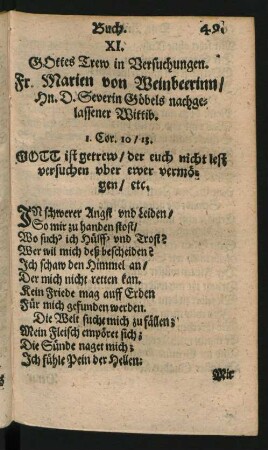 Buch. 49.
XI.
GOttes Trew in Versuchungen.
Fr. Marien von Weinbeerinn/
Hn. D. Severin Göbels nachge-
lassener Wittib.
1. Cor. 10/ 13.
GOTT ist getrew/ der euch nicht lest
versuchen vber ewer vermö-
gen/ etc.
IN schwerer Angst vnd Leiden/
So mir zu handen stost/
Wo such' ich Hülff' vnd Trost?
Wer wil mich deß bescheiden?
Ich schaw den Himmel an/
Der mich nicht retten kan.
Kein Friede mag auff Erden
Für mich gefunden werden.
Die Welt sucht mich zu fällen;
Mein Fleisch empöret sich;
Die Sünde naget mich;
Ich fühle Pein der Hellen:
Mit